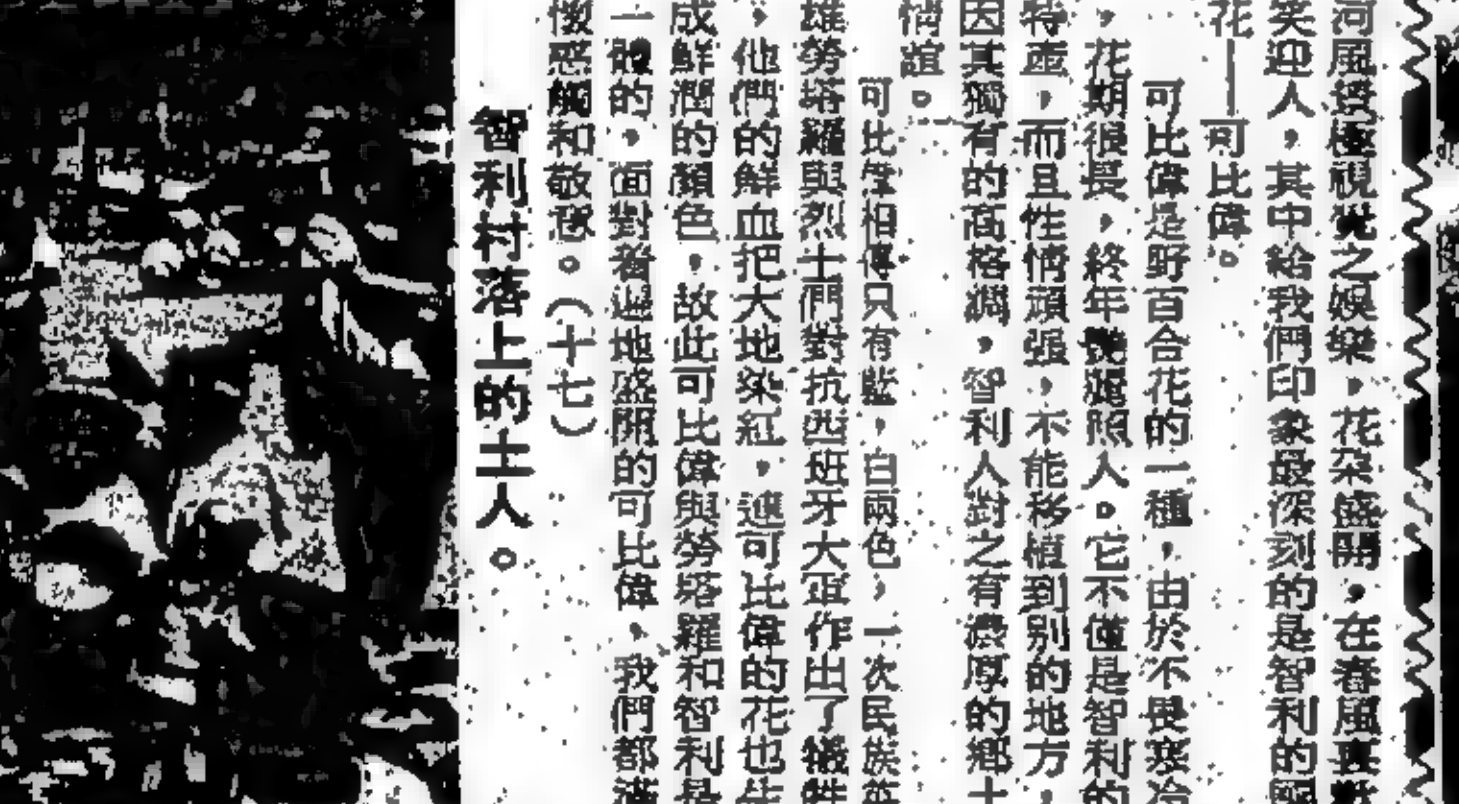 河風情極視覺之娛樂，花朵盛開，在春風裏
笑迎人，其中給我們印象最深刻的是智利的國
花——可比偉。
可比偉是野百合花的一種，由於不畏寒冷
，花期很長，終年艷麗照人。它不僅是智利的
特產，而且性情頑强，不能移植到别的地方，
因其獨有的高格調，智利人對之有濃厚的鄉土
情誼。
可比偉相傳只有藍，白兩色，一次民族英
雄勞塔羅與烈士們對抗西班牙大軍作出了犧牲
，他們的鮮血把大地染紅，連可比偉的花也
成鮮潤的顏色，故此可比偉與勞塔羅和智利是
一體的，面對着遍地盛開的可比偉，我們都滿
懷感觸和敬意。（十七）
智利村落上的土人。